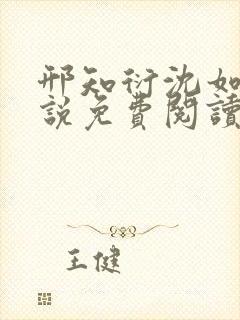 邢知衍沈如
說免費閱讀
王健